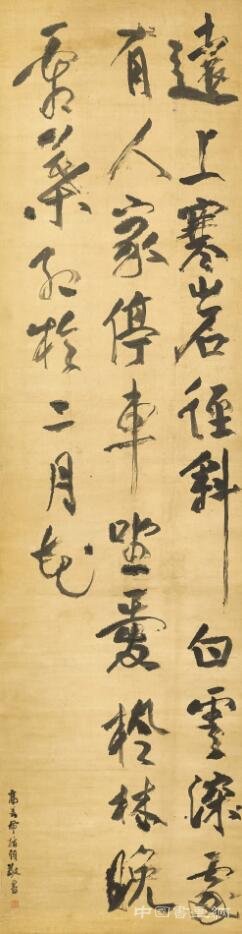 遠上寒山石徑斜白雲深處
有人家停車坐愛楓林晚
霜葉紅於二月花
中国書畫網